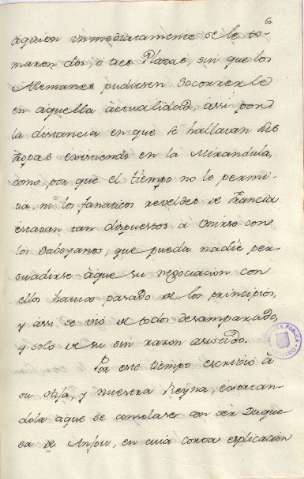 6
aquien immediatamente se le to-
maron dos, o tres Plazas, sin que los
Alemanes pudiesen socorrerle
en aquella actualidad, assi por
la distancia en que se hallavan las
tropas en la Mirandula,
como por que el tiempo no le permi-
tia, ni los fanaticos reveldes de Francia
estavan tan dispuestos à Unirse con
los Saboyanos, que pueda nadie per-
suadirse àque su negociacion con
ellos huviese pasado de los principios,
y assi se vió de todo desamparado,
y solo de su sin razon asistido.
Por este tiempo escrivió à
su Hija, y nuestra Reyna,
dola aque se consolase con ser Duque-
sa de Anjou, en cuia corta explicacion